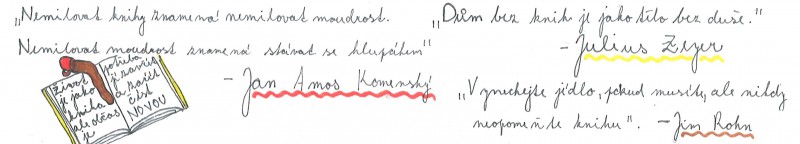 „Nemilovat knihy znamená nemilovat moudrost.
Nemilovat moudrost znamená stávat se hlupákem"
- Jan Amos Komenský
život
je jako
kniha
ale občas
je
potřeba
ji zavřít
a začít
číst
NOVOU
„Dům bez knih je jako tělo bez duše."
- Julius Zeyer
„Vynechejte jídlo, pokud musíte, ale nikdy
neopomeňte knihu". - Jim Rohn